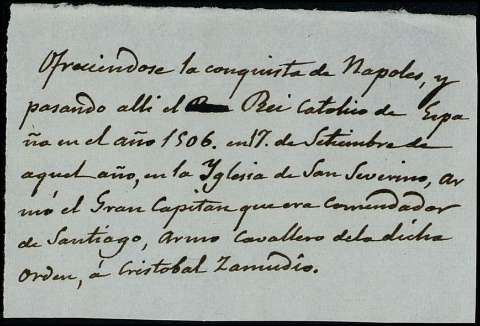 Ofreciendose la conquista de Napoles, y
pasando alli el Rei Catolico de Espa
ña en el año 1506. en 17. de Setiembre de
aquel año, en la Yglesia de San Severino, ar
mó el Gran Capitan que era Comendador
de Santiago, armo Cavallero dela dicha
orden, á Cristobal Zamudio.